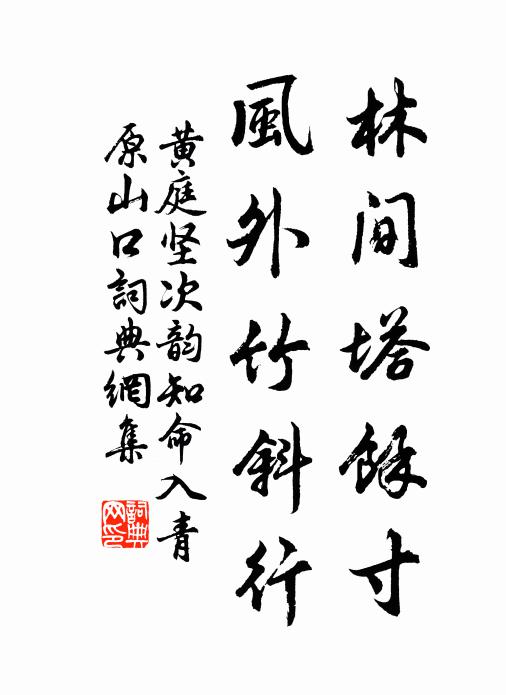 林间塔餘寸
風外竹斜行
黄庭坚次韵知命入青
原山口詞典網集
詞典
网印